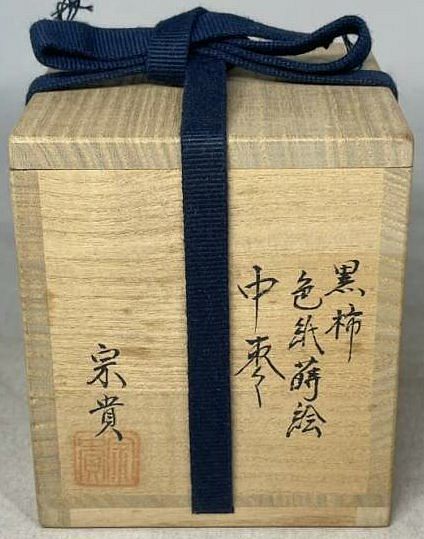 黒柿
色紙蒔絵
中棗
宗貴